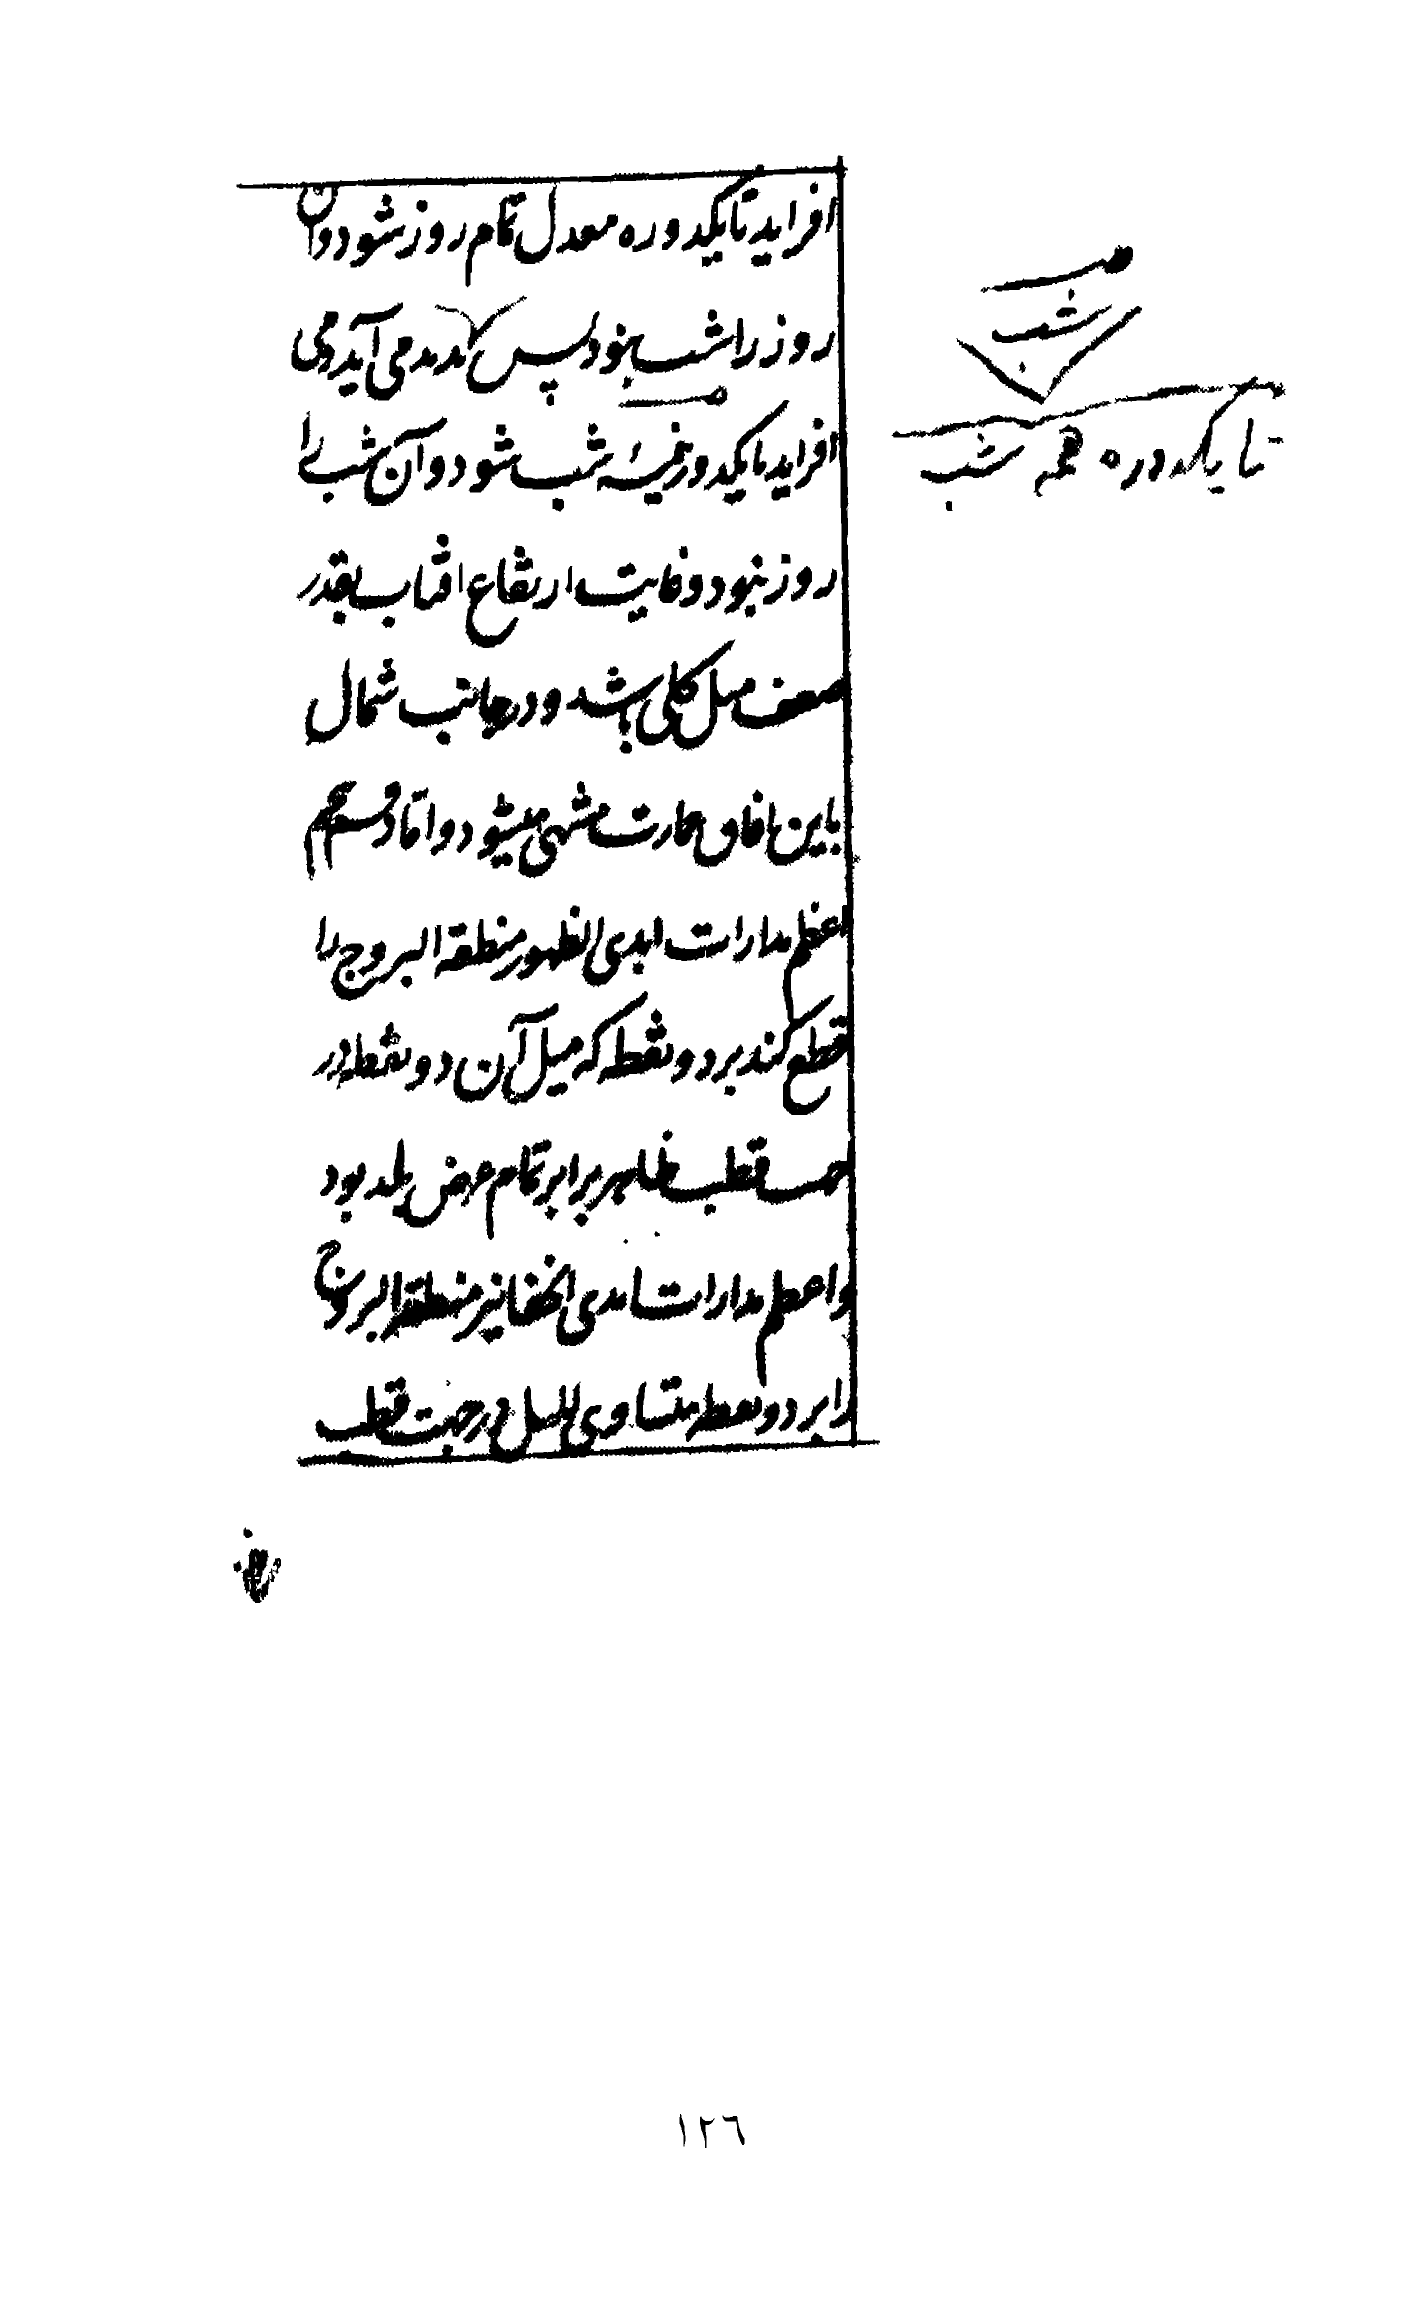 افزاید تا یکدوره معدل تمام روز شود و آن
روز را شب نبود پس پدید می آید و می
افزاید تا یکدوره همه شب شود و آن شب را
روز نبود و غایت ارتفاع افتاب بقدر
ضعف میل کلی باشد و در جانب شمال
باین افاق عمارت منتهی میشود و اما دو قسم
اعظم مدارات ابدی الظهور منطقة البروج را
قطع کند بر دو نقطه که میل آن دو نقطه در
جهت قطب ظاهر برابر تمام عرض بلد بود
و اعظم مدارات ابدی الخفا نیز منطقة البروج
را بر دو نقطه متساوی المیل در جهت قطب
شب
تا یکدوره همه شب
١٢٦